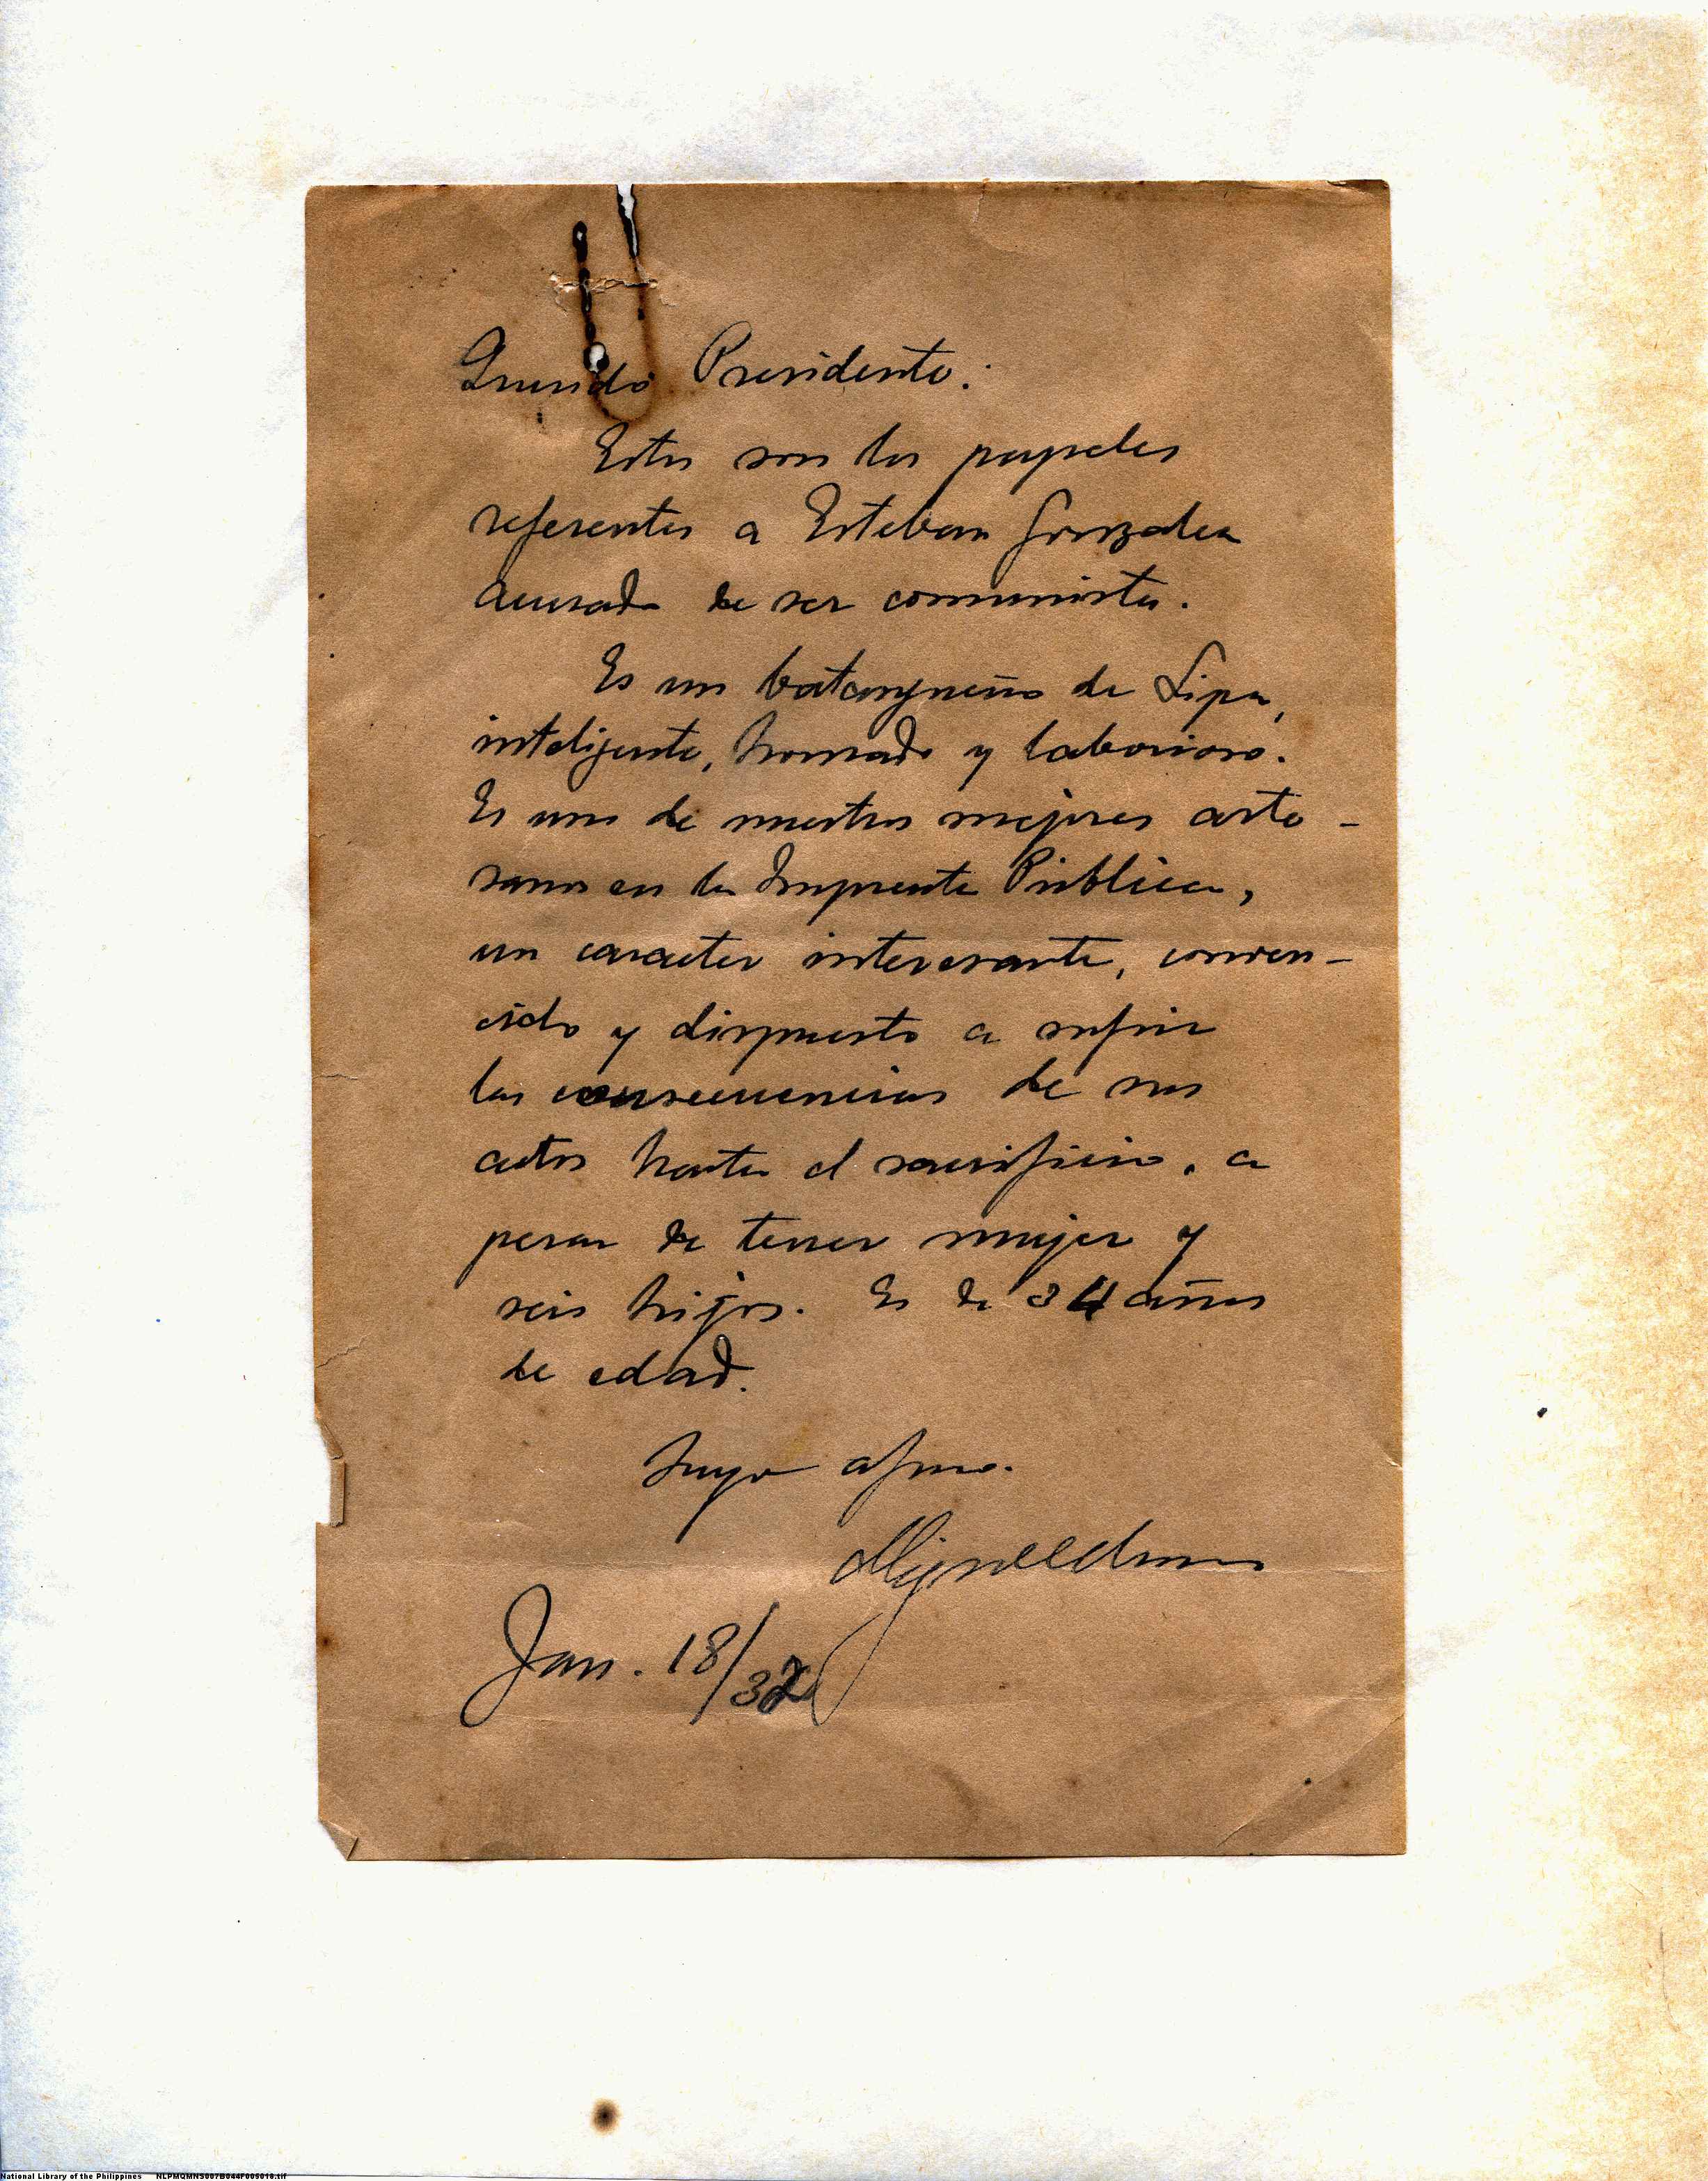 Querido Presidente:
Estos son los papeles
referentes a Esteban Gonzalez
acusado de ser comunista.
Es un batangueño de Lipa,
inteligente, honrado y laborioso.
Es uno de nuestros mejores arte-
sanos en la Imprenta Pública,
un caracter interesante, conven-
cido y dispuesto a sufrir
las consecuencias de sus
actos hasta el sacrificio, a
pesar de tener mujer y
seis hijos. Es de 34 años
de edad.
Suyo afmo.
Jan. 18/32
National Library of the Philippines